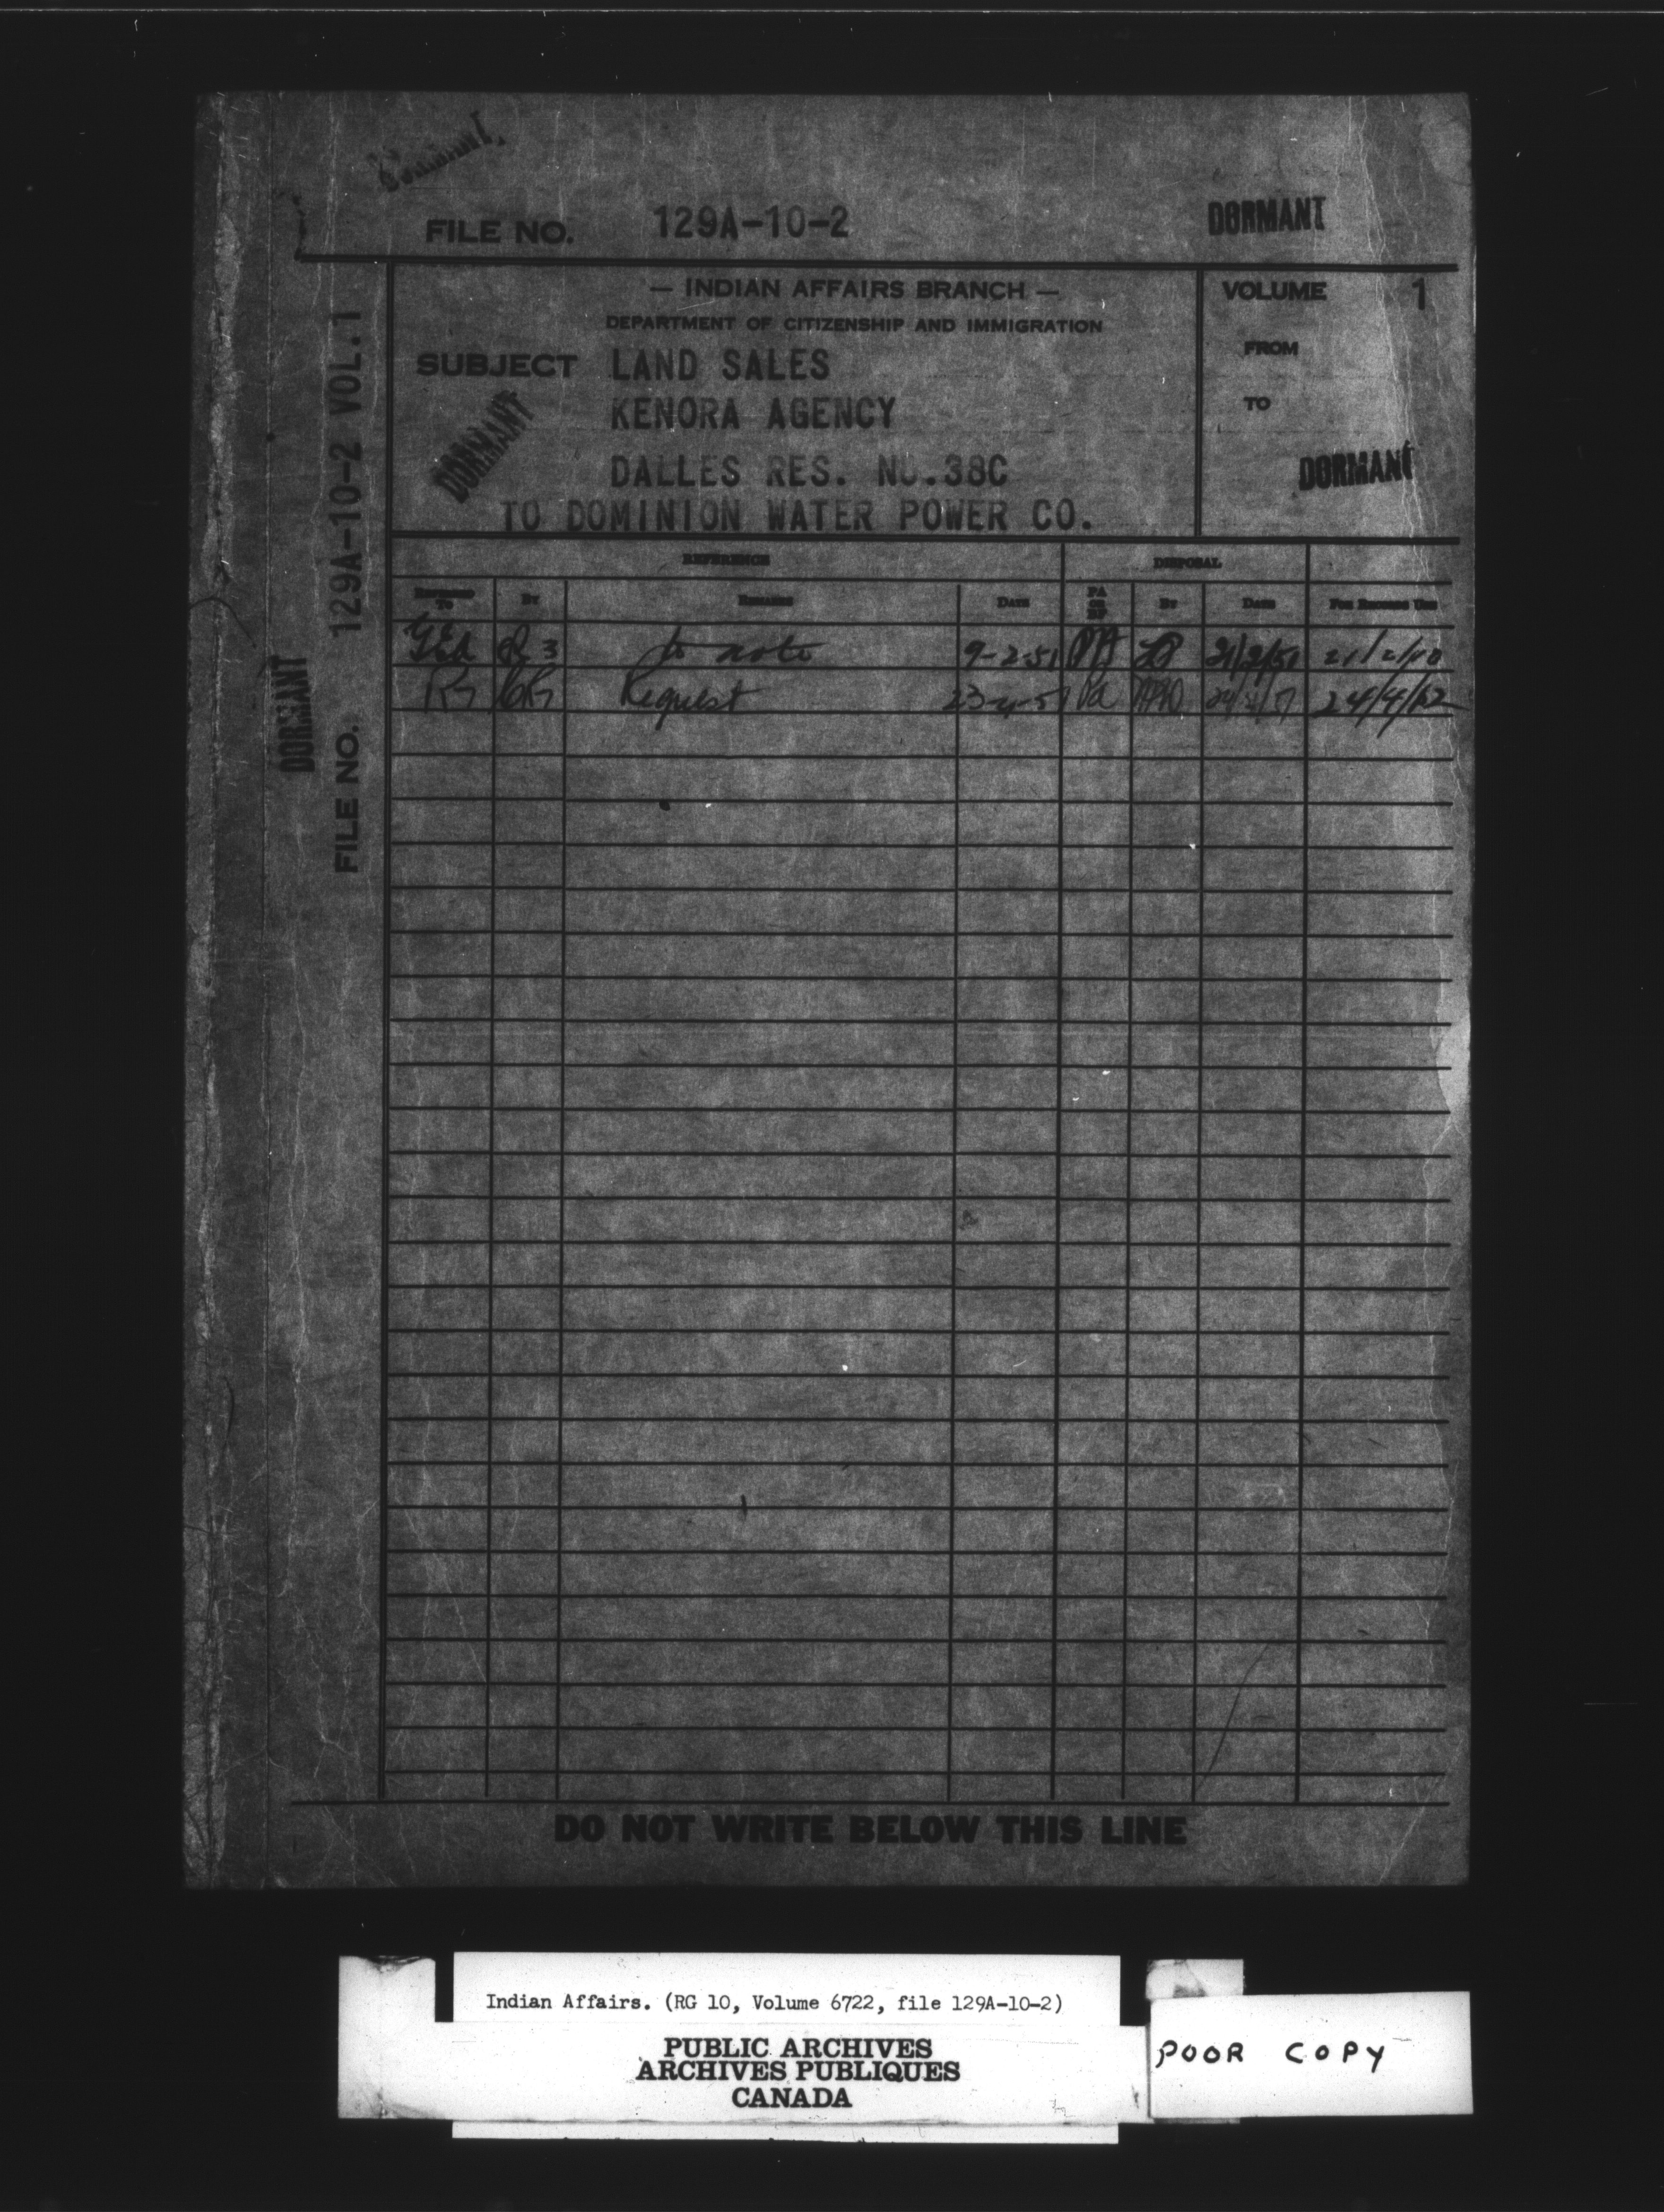 DORMANT
FILE NO. 129A-10-2 DORMANT
— INDIAN AFFAIRS BRANCH —
DEPARTMENT OF CITIZENSHIP AND IMMIGRATION
SUBJECT LAND SALES
KENORA AGENCY
DALLES RES. NO.38C
TO DOMINION WATER POWER CO.
DORMANT
VOLUME 1
FROM
TO
DORMANT
FILE NO. 129A-10-2 VOL.1
DORMANT
REFERENCE DISPOSAL
REFERRED TO BY REMARKS DATE PA OR BF BY DATE FOR RECORDS USE
to note 9-2-51 PA 21/2/51
Request 23-4-51 PA 24/4/62
DO NOT WRITE BELOW THIS LINE
Indian Affairs. (RG 10, Volume 6722, file 129A-10-2)
PUBLIC ARCHIVES
ARCHIVES PUBLIQUES
CANADA
POOR COPY